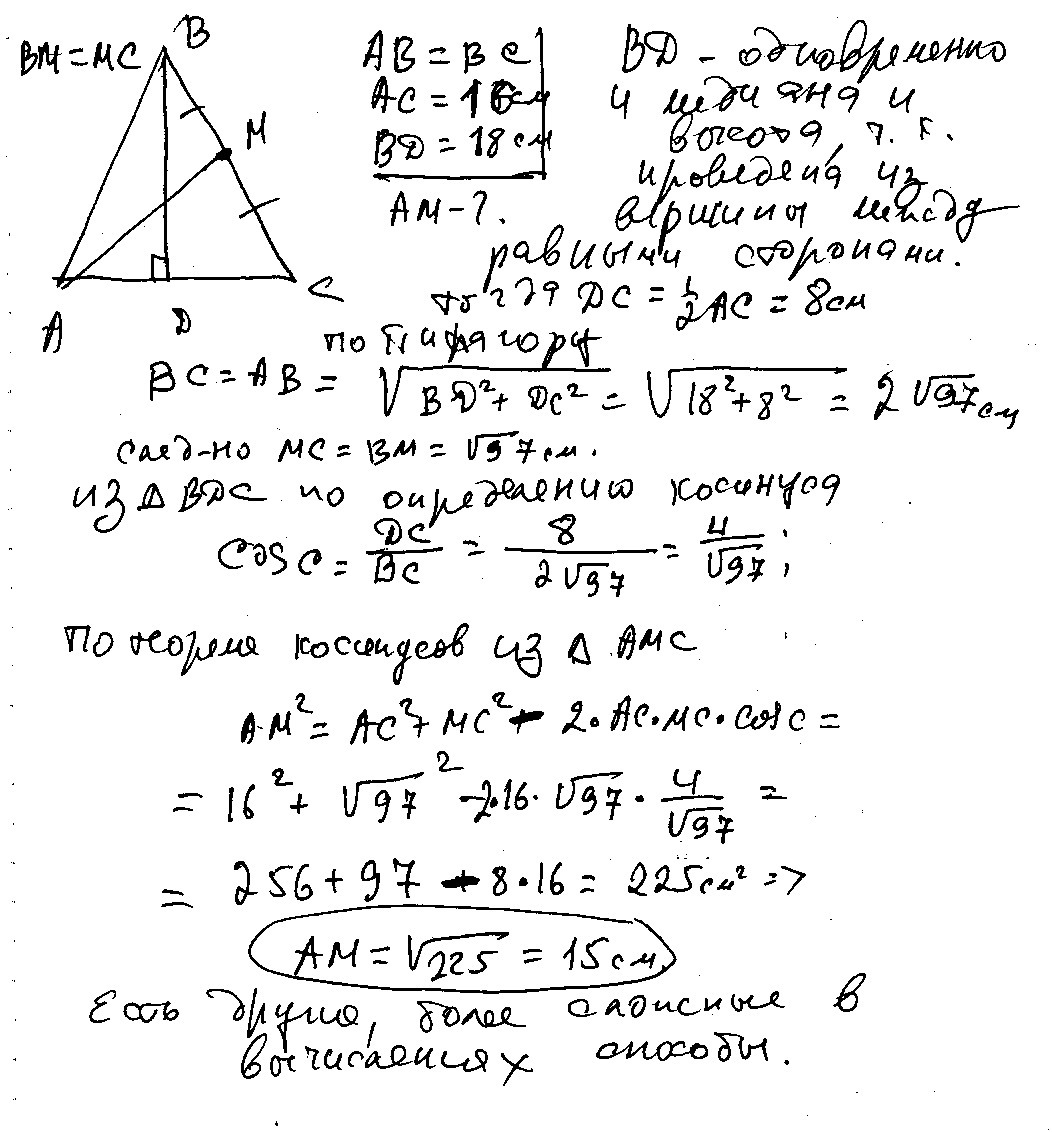 BM = MC
B
M
A
D
C
AB = BC
AC = 16см
BD = 18см
AM - ?
BD - одновременно
и медиана и
высота, т. к.
проведена из
вершины между
равными сторонами.
тогда DC = 1/2 AC = 8см
по Пифагору
BC = AB = √(BD² + DC²) = √(18² + 8²) = 2√97 см
след-но MC = BM = √97 см.
из Δ BDC по определению косинуса
cos C = DC/BC = 8/(2√97) = 4/√97;
По теореме косинусов из Δ AMC
AM² = AC² + MC² - 2·AC·MC·cos C =
= 16² + √97² - 2·16·√97·4/√97 =
= 256 + 97 - 8·16 = 225см² =>
AM = √225 = 15см.
Есть другие, более сложные в
вычислениях способы.